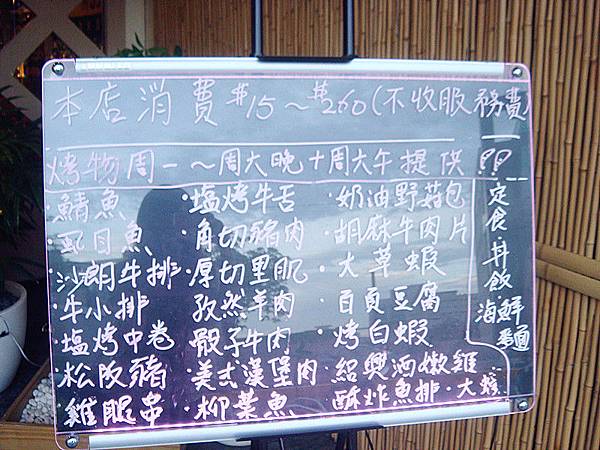 本店消費$15～$260(不收服務費)
烤物周一～周六晚十周六午提供!!
·鯖魚
·虱目魚
·沙朗牛排
·牛小排
·塩烤中卷
·松阪豬
·雞腿串
·塩烤牛舌
·角切豬肉
·厚切里肌
·孜然羊肉
·骰子牛肉
·美式漢堡肉
·柳葉魚
·奶油野菇包
·胡麻牛肉片
·大草蝦
·百頁豆腐
·烤白蝦
·紹興酒嫩雞
·酥炸魚排·大
定食、丼飯
海鮮